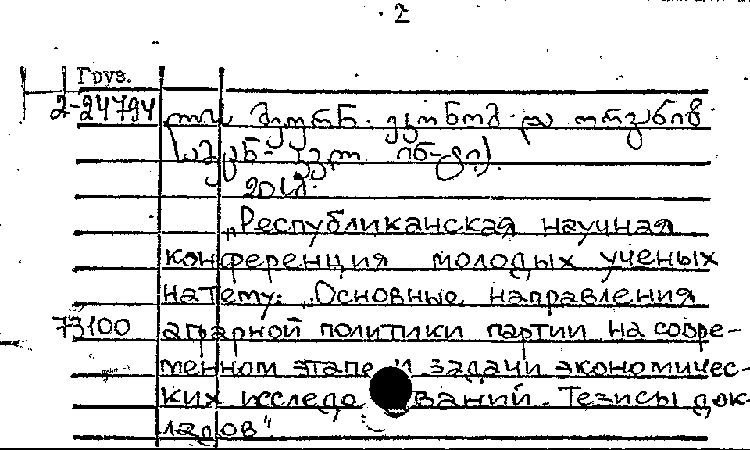 2
Груз.
2-24794 მეურნ. ეკონომ. და ორგანიზ.
20სმ.
„Республиканская научная
конференция молодых ученых
на тему: „Основные направления
73100 аграрной политики партии на совре-
менном этапе и задачи экономичес-
ких исследований. Тезисы док-
ладов“.